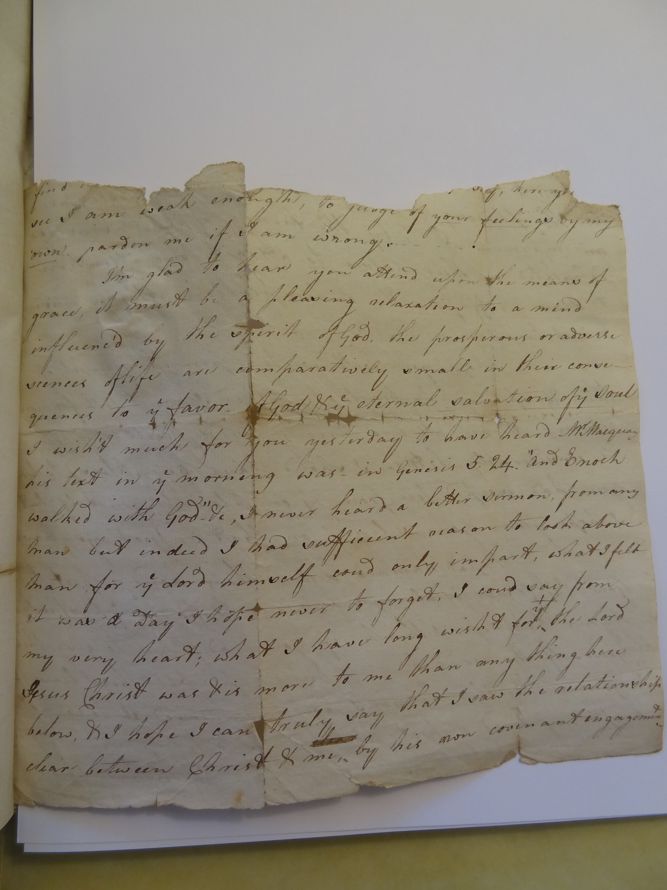 find
see I am weak enough, to judge of your feelings by my
own. pardon me if I am wrong.
I'm glad to hear you attend upon the means of
grace, it must be a pleasing relaxation to a mind
influenc'd by the spirit of God. the prosperous or adverse
scences of life are comparatively small in their conse-
quences to ye favor of God, & ye eternal salvation of ye soul
I wish't much for you yesterday to have heard Mr.
his text in ye morning was in Genesis 5 24. "and Enoch
walked with God" &c, I never heard a better sermon, from any
man but indeed I had sufficient reason to look above
man for ye Lord himself coud only impart, what I felt
it was a Day I hope never to forget, I coud say from
my very heart; what I have long wisht for, yt the Lord
Jesus Christ was & is more to me than any thing here
below, & I hope I can truly say that I saw the relationship
clear between Christ & me, by his own covenant engagemts.